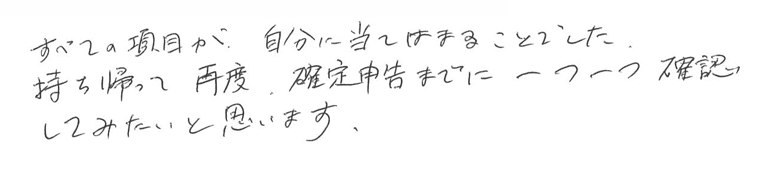 すべての項目が、自分に当てはまることでした。
持ち帰って再度、確定申告までに一つ一つ確認
してみたいと思います。